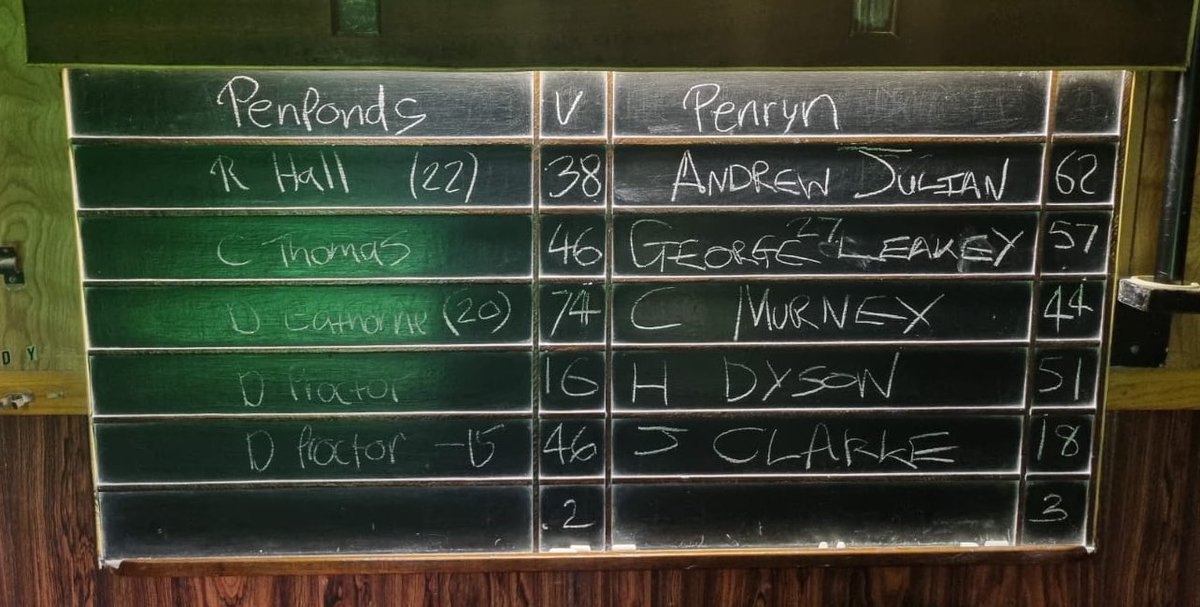 Penponds V Penryn
R Hall (22) 38 ANDREW JULIAN 62
C Thomas 46 GEORGE 27 LEAKEY 57
D Eathorne (20) 74 C MURNEY 44
D Proctor 16 H DYSON 51
D Proctor -15 46 J CLARKE 18
2 3
D Y